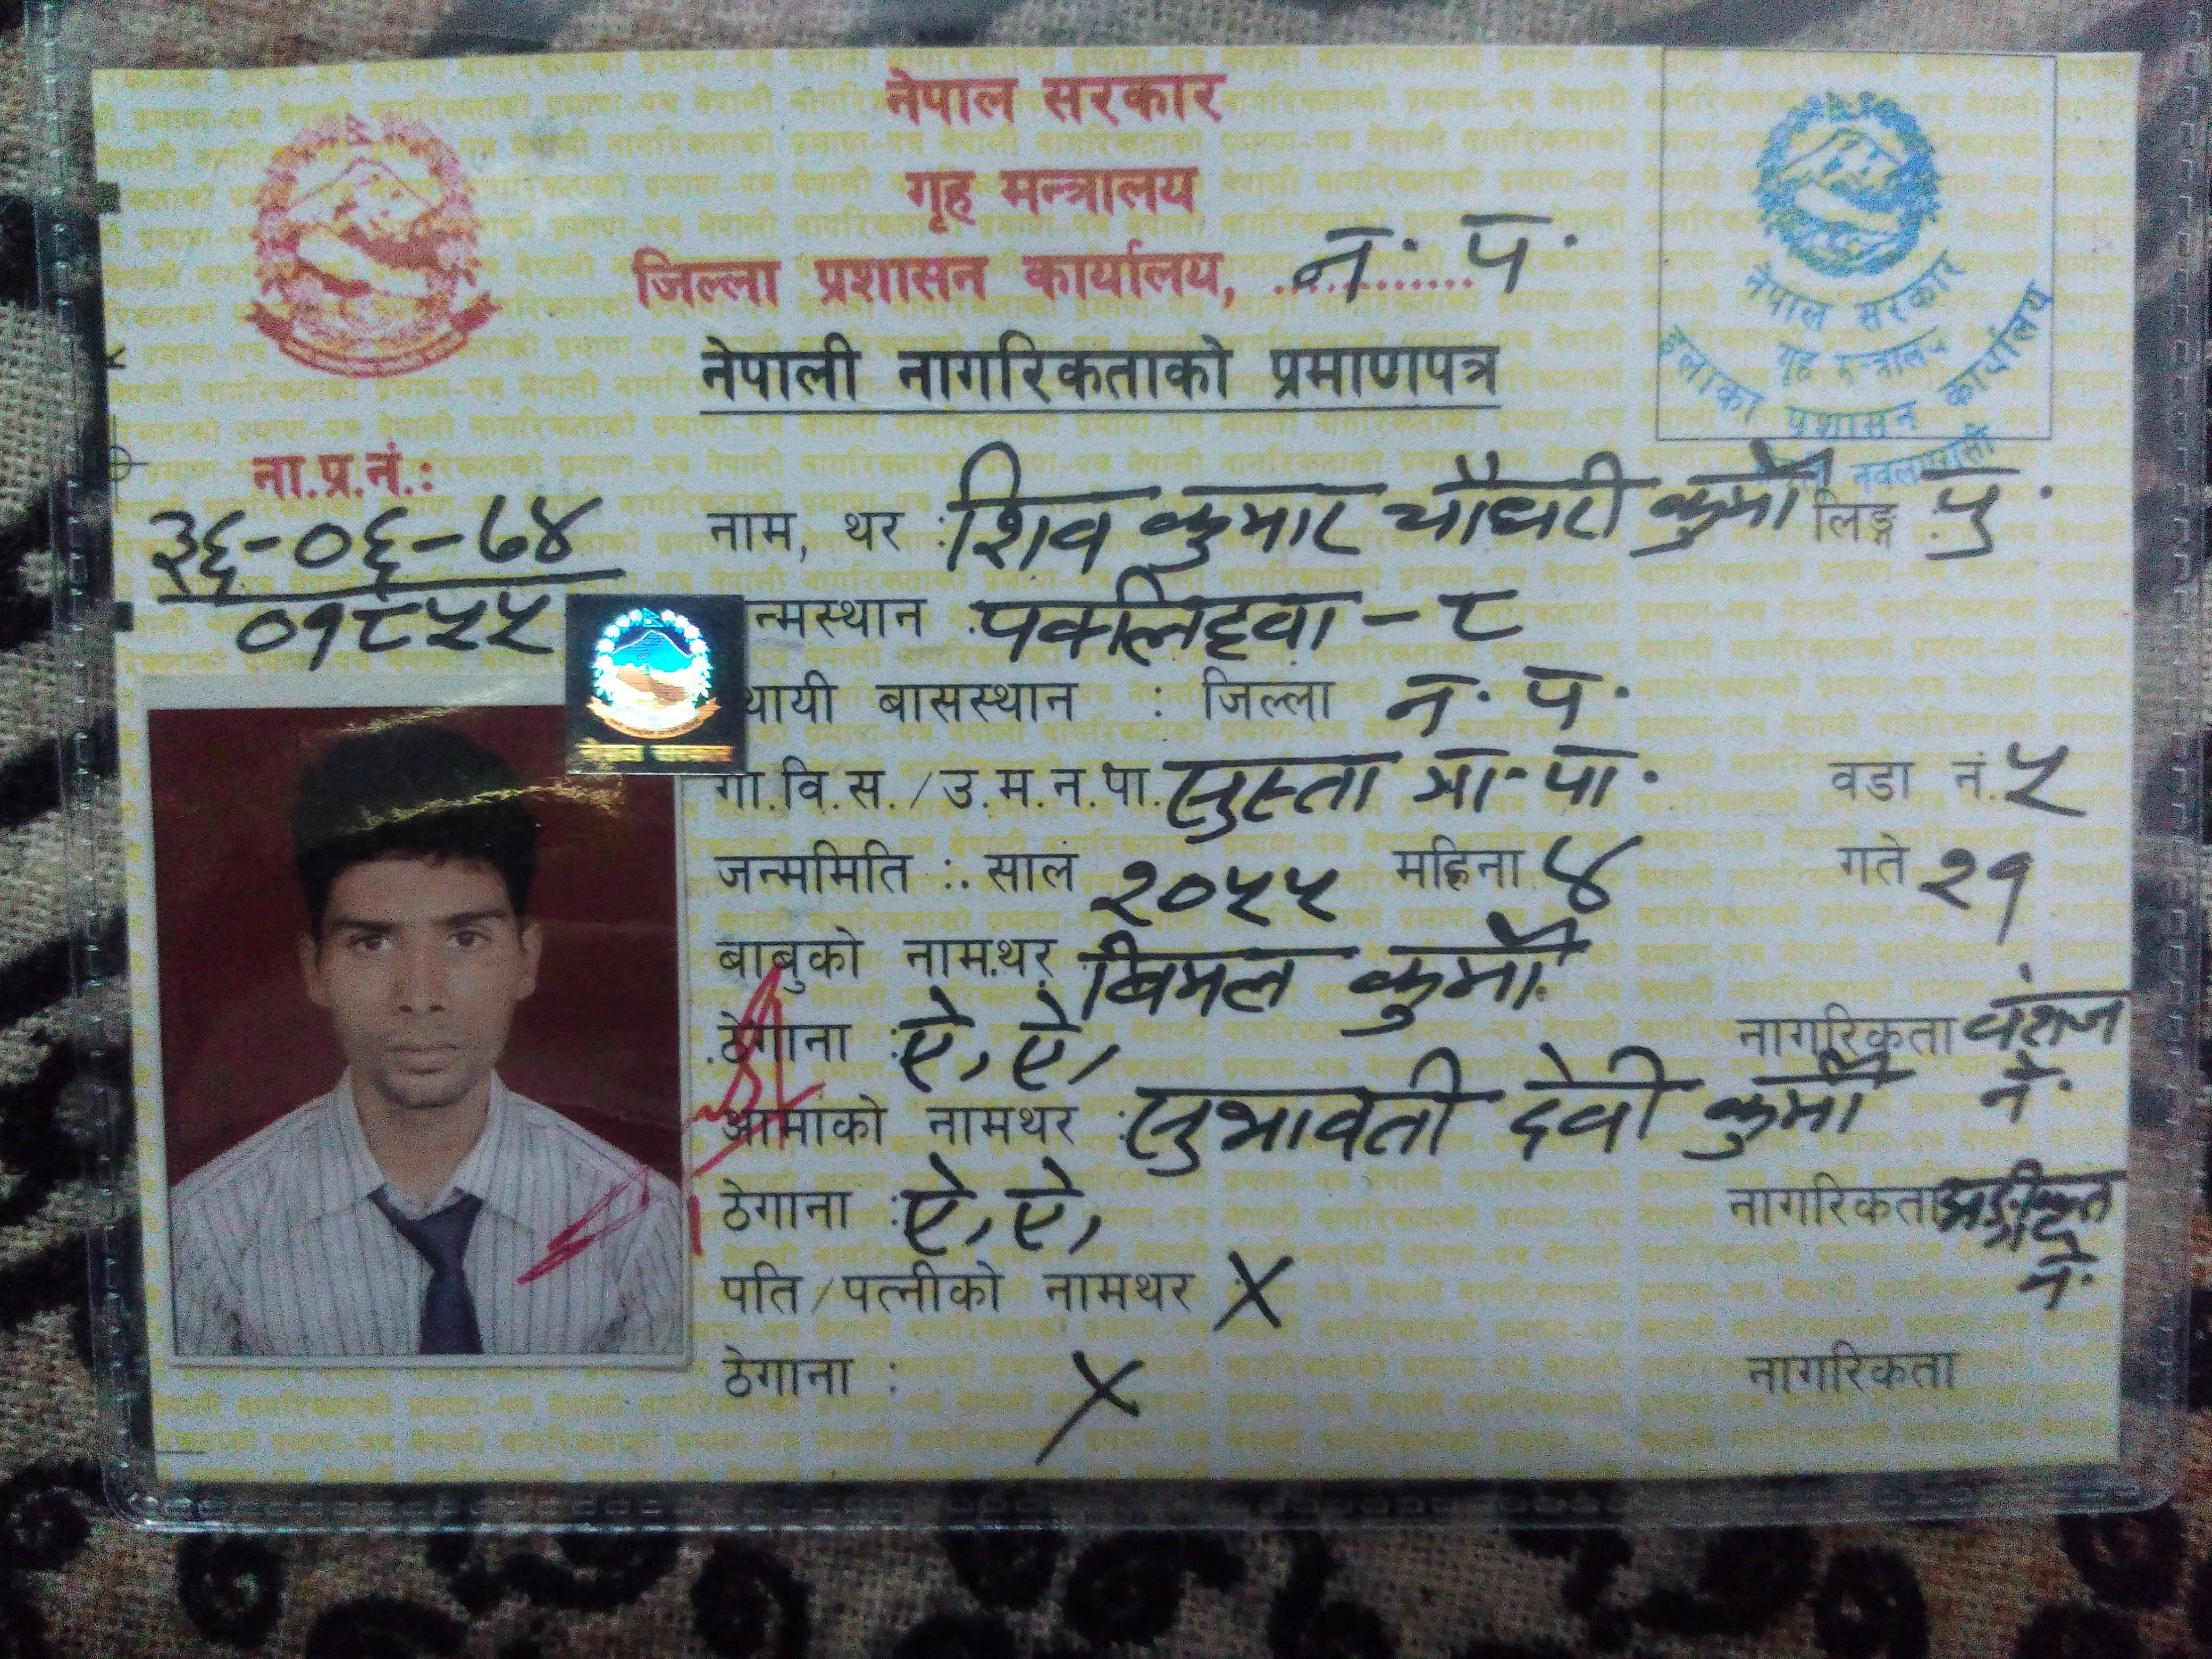 नेपाल सरकार
गृह मन्त्रालय
जिल्ला प्रशासन कार्यालय, न. प.
नेपाली नागरिकताको प्रमाणपत्र
नेपाल सरकार
गृह मन्त्रालय
इलाका प्रशासन कार्यालय
नवलपरासी
ना.प्र.नं.:
३६-०६-७४
०१८५५
नेपाल सरकार
नाम, थर : शिव कुमार चौधरी कुर्मी लिङ्ग पु.
न्मस्थान पक्लिहवा - ८
थायी बासस्थान : जिल्ला न. प.
गा.वि.स./उ.म.न.पा. सुस्ता गा. पा. वडा नं. ५
जन्ममिति : साल २०५५ महिना ४ गते २१
बाबुको नाम.थर बिमल कुर्मी
ठेगाना : ऐ, ऐ, नागरिकता वंशज ने.
आमाको नामथर : सुभावती देवी कुर्मी
ठेगाना : ऐ, ऐ, नागरिकता अङ्गीकृत ने.
पति/पत्नीको नामथर X
ठेगाना : X नागरिकता